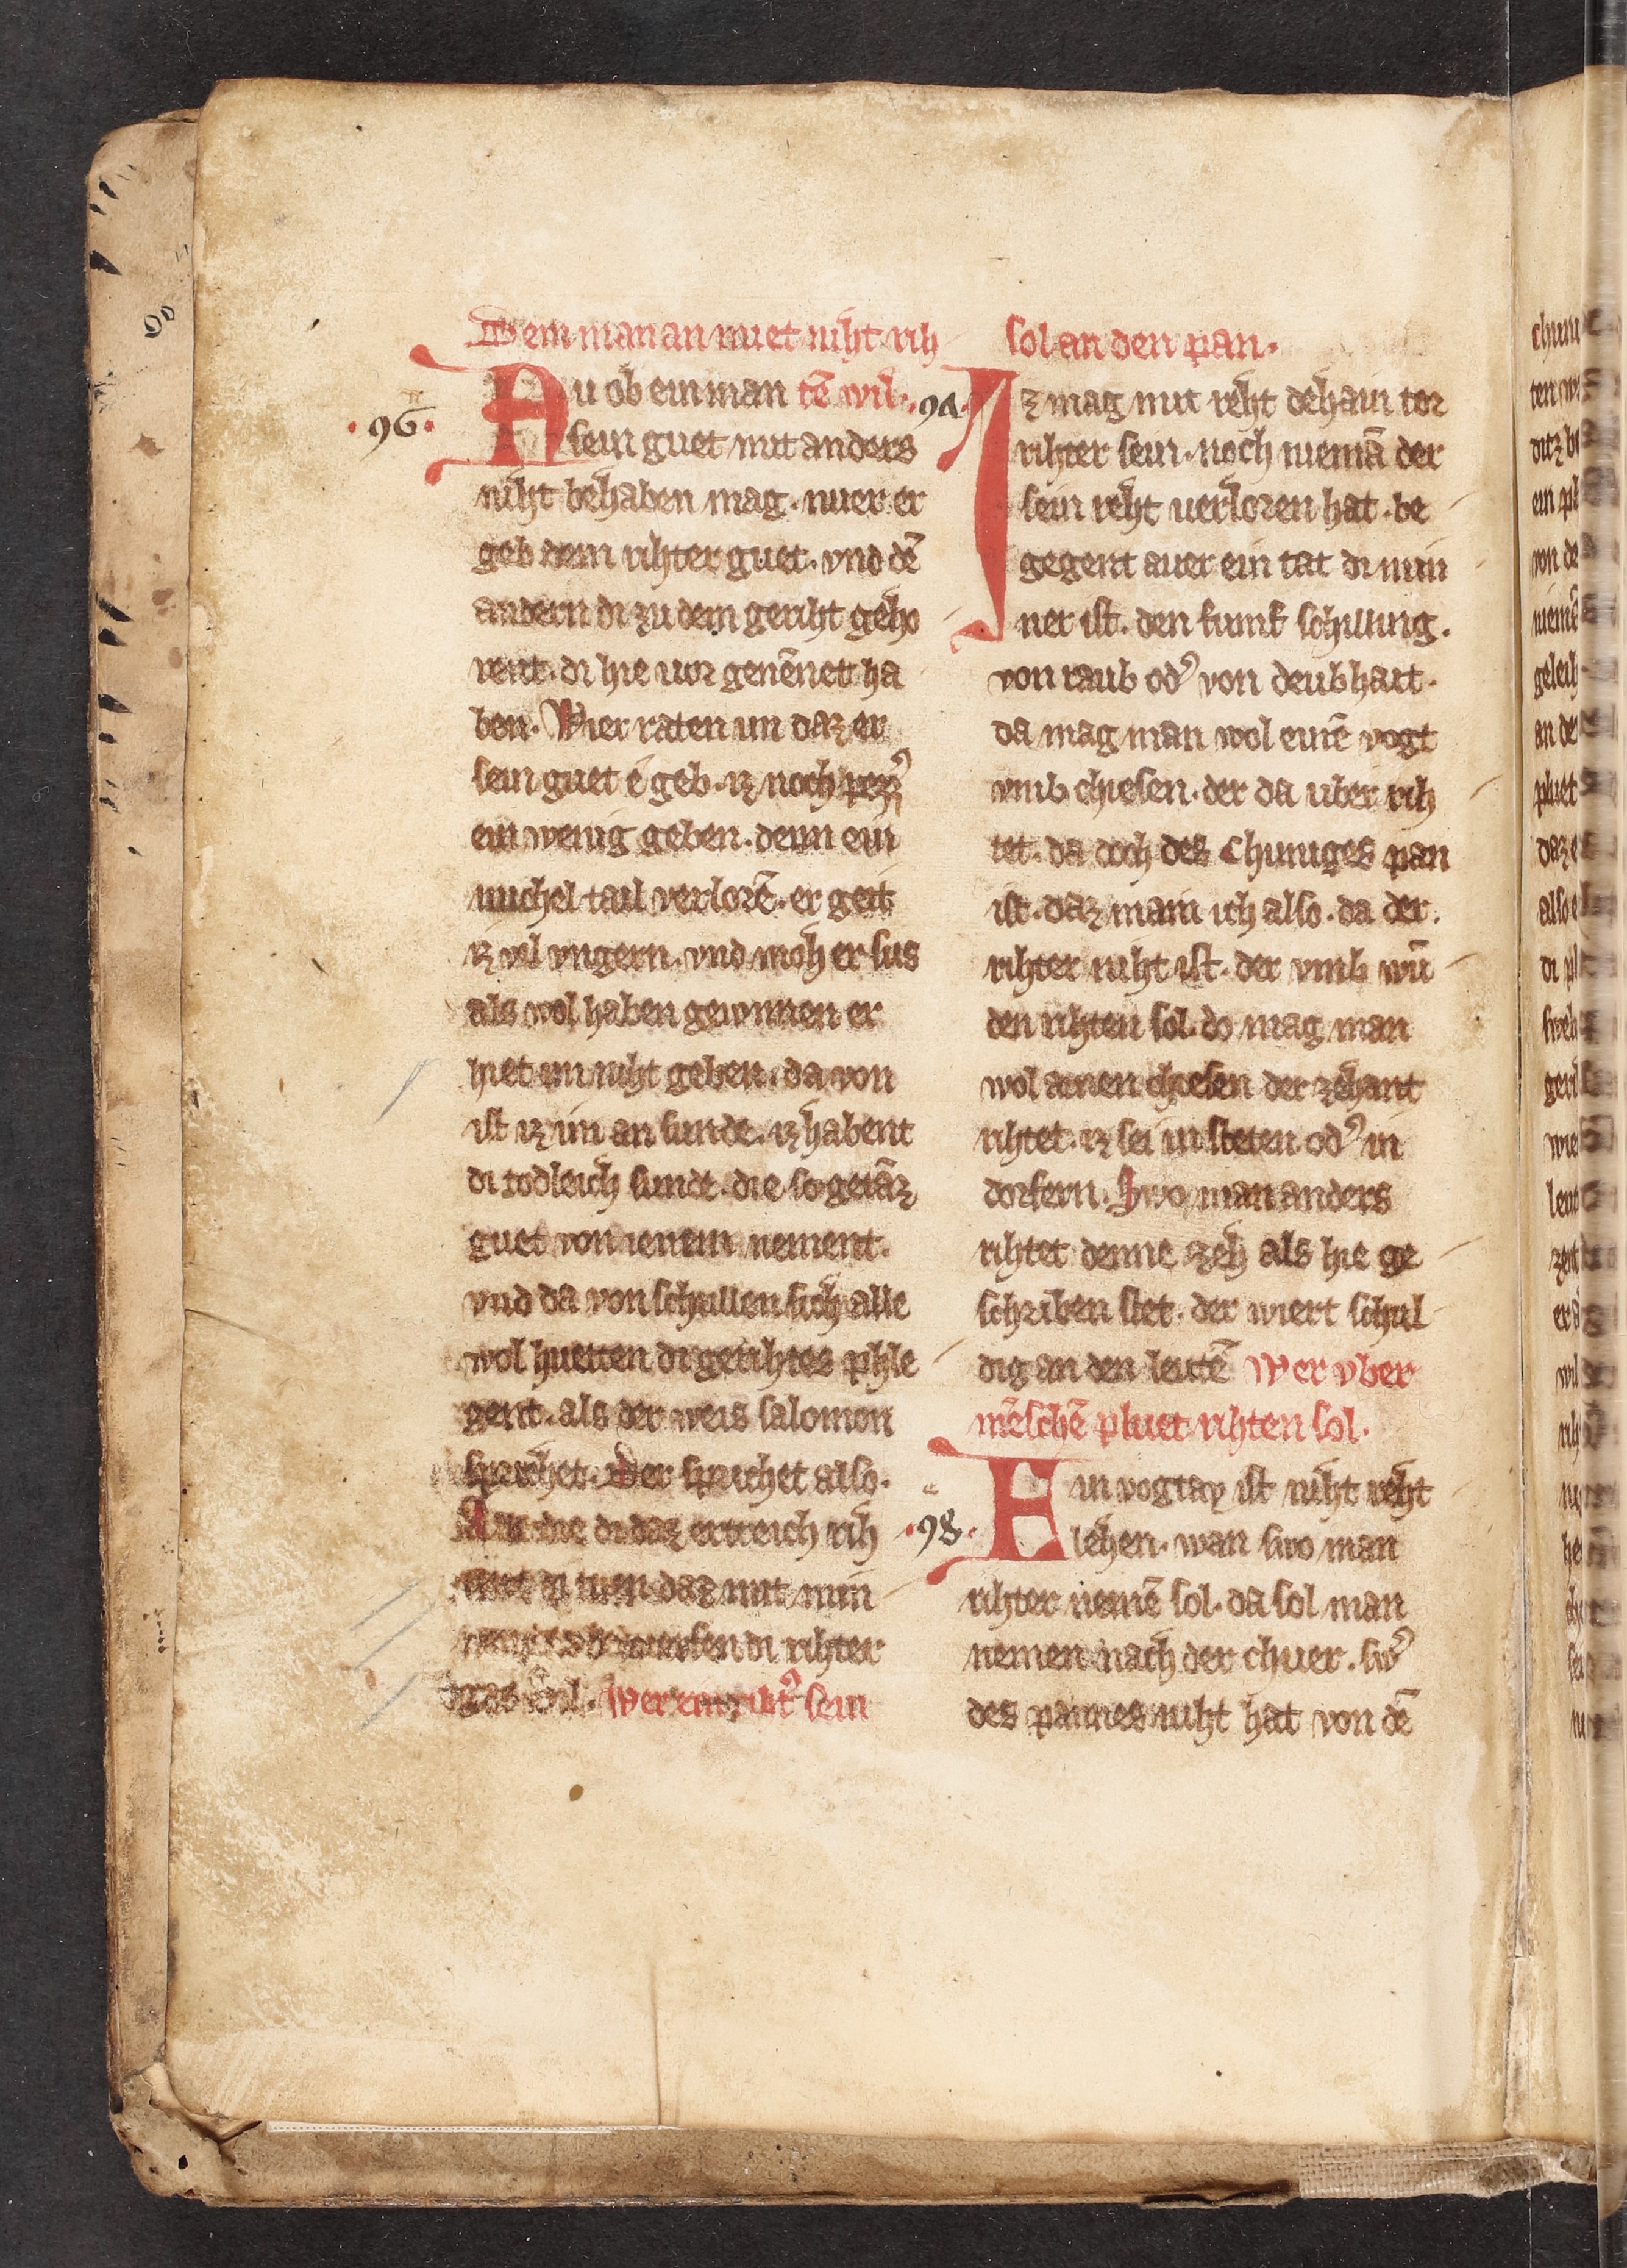 Wem man an muet niht rih
·96· Nu ob ein man tē wil·
sein guet mit anders
niht behaben mag· nuer er
geb dem rihter guet· vnd dē
andern di zu dem geriht geho
rent· di hie uor genēnet ha
ben· Wier raten im daz er
sein guet ē geb· iz noch pezz᾽
ein wenig geben· denn ein
michel tail verlorē· er geit
iz vil vngern· vnd moh er sus
als wol haben gewnnen er
hiet im niht geben· da von
ist iz im an sunde· iz habent
di todleich sunde· die so getāz
guet von ienem nement·
vnd da von schullen sich alle
wol huetten di gerihtes phle
gent· als der weis salomon
sprichet· Der sprichet also·
die di daz ertreich rih
daz mit min
di rihter
Wer rihť sein
sol an den pan·
·97· Iz mag mit reht dehain tor
rihter sein· noch niemā der
sein reht uerloren hat· be
gegent auer ein tat di min
ner ist· den fumf schilling·
von raub od᾽ von deubhait·
da mag man wol einē vogt
vmb chiesen· der da uber rih
tet· da doch des chuniges pan
ist· daz main ich also· da der·
rihter niht ist· der vmb wū
den rihten sol· do mag man
wol ainen chiesen der zehant
rihtet· iz sei in steten od᾽ in
dorfern· Swo man anders
rihtet denne zeh als hie ge
schriben stet· der wiert schul
dig an den leutē Wer vber
mēschē pluet rihten sol·
·98· Ein vogtay ist niht reht
lehen· wan swo man
rihter nemē sol· da sol man
nemen nach der chuer· sw᾽
des pannes niht hat von dē